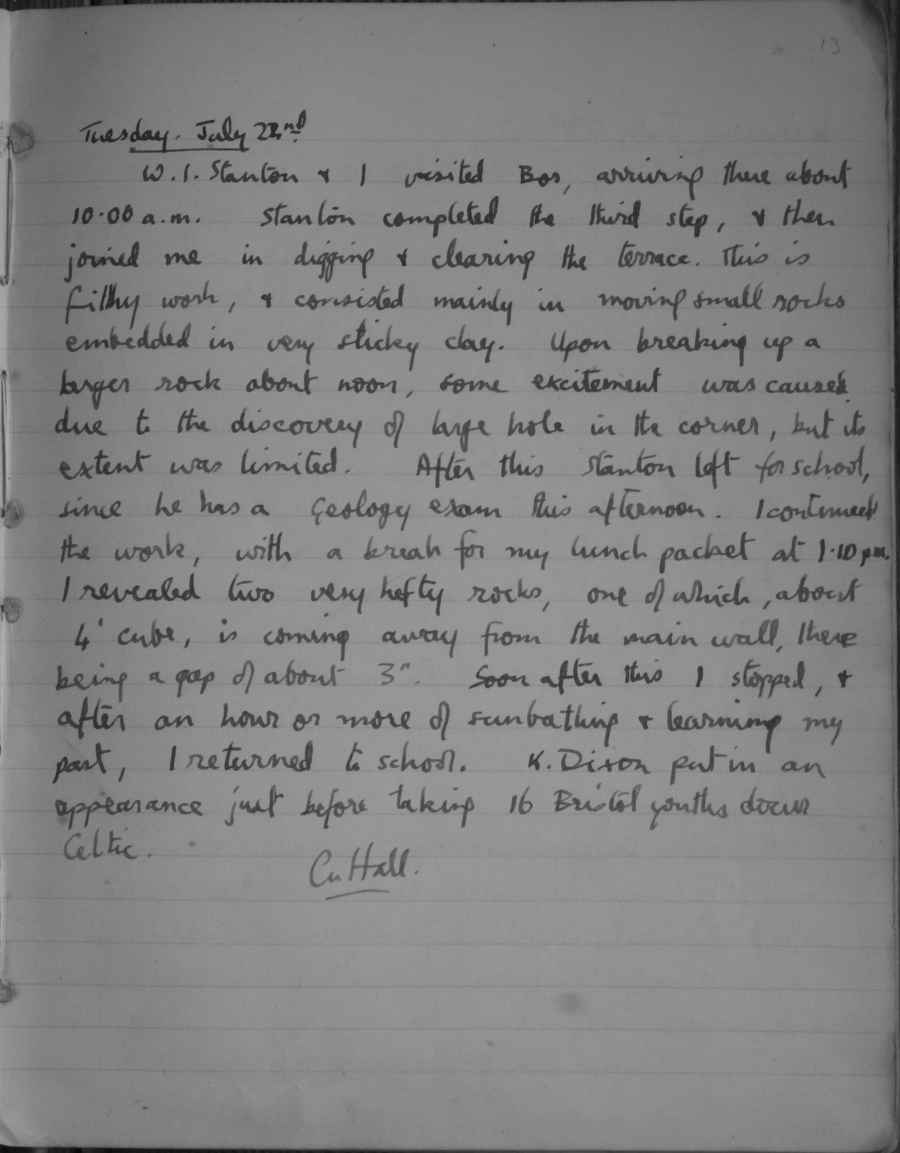 13
Tuesday. July 22nd
W. I. Stanton & I visited Bos, arriving there about
10·00 a.m. Stanton completed the third step, & then
joined me in digging & clearing the terrace. This is
filthy work, & consisted mainly in moving small rocks
embedded in very sticky clay. Upon breaking up a
larger rock about noon, some excitement was caused
due to the discovery of large hole in the corner, but its
extent was limited. After this Stanton left for school,
since he has a Geology exam this afternoon. I continued
the work, with a break for my lunch packet at 1·10 p.m.
I revealed two very hefty rocks, one of which, about
4' cube, is coming away from the main wall, there
being a gap of about 3". Soon after this I stopped, &
after an hour or more of sunbathing & learning my
part, I returned to school. K. Dixon put in an
appearance just before taking 16 Bristol youths down
Celtic.
Hall.